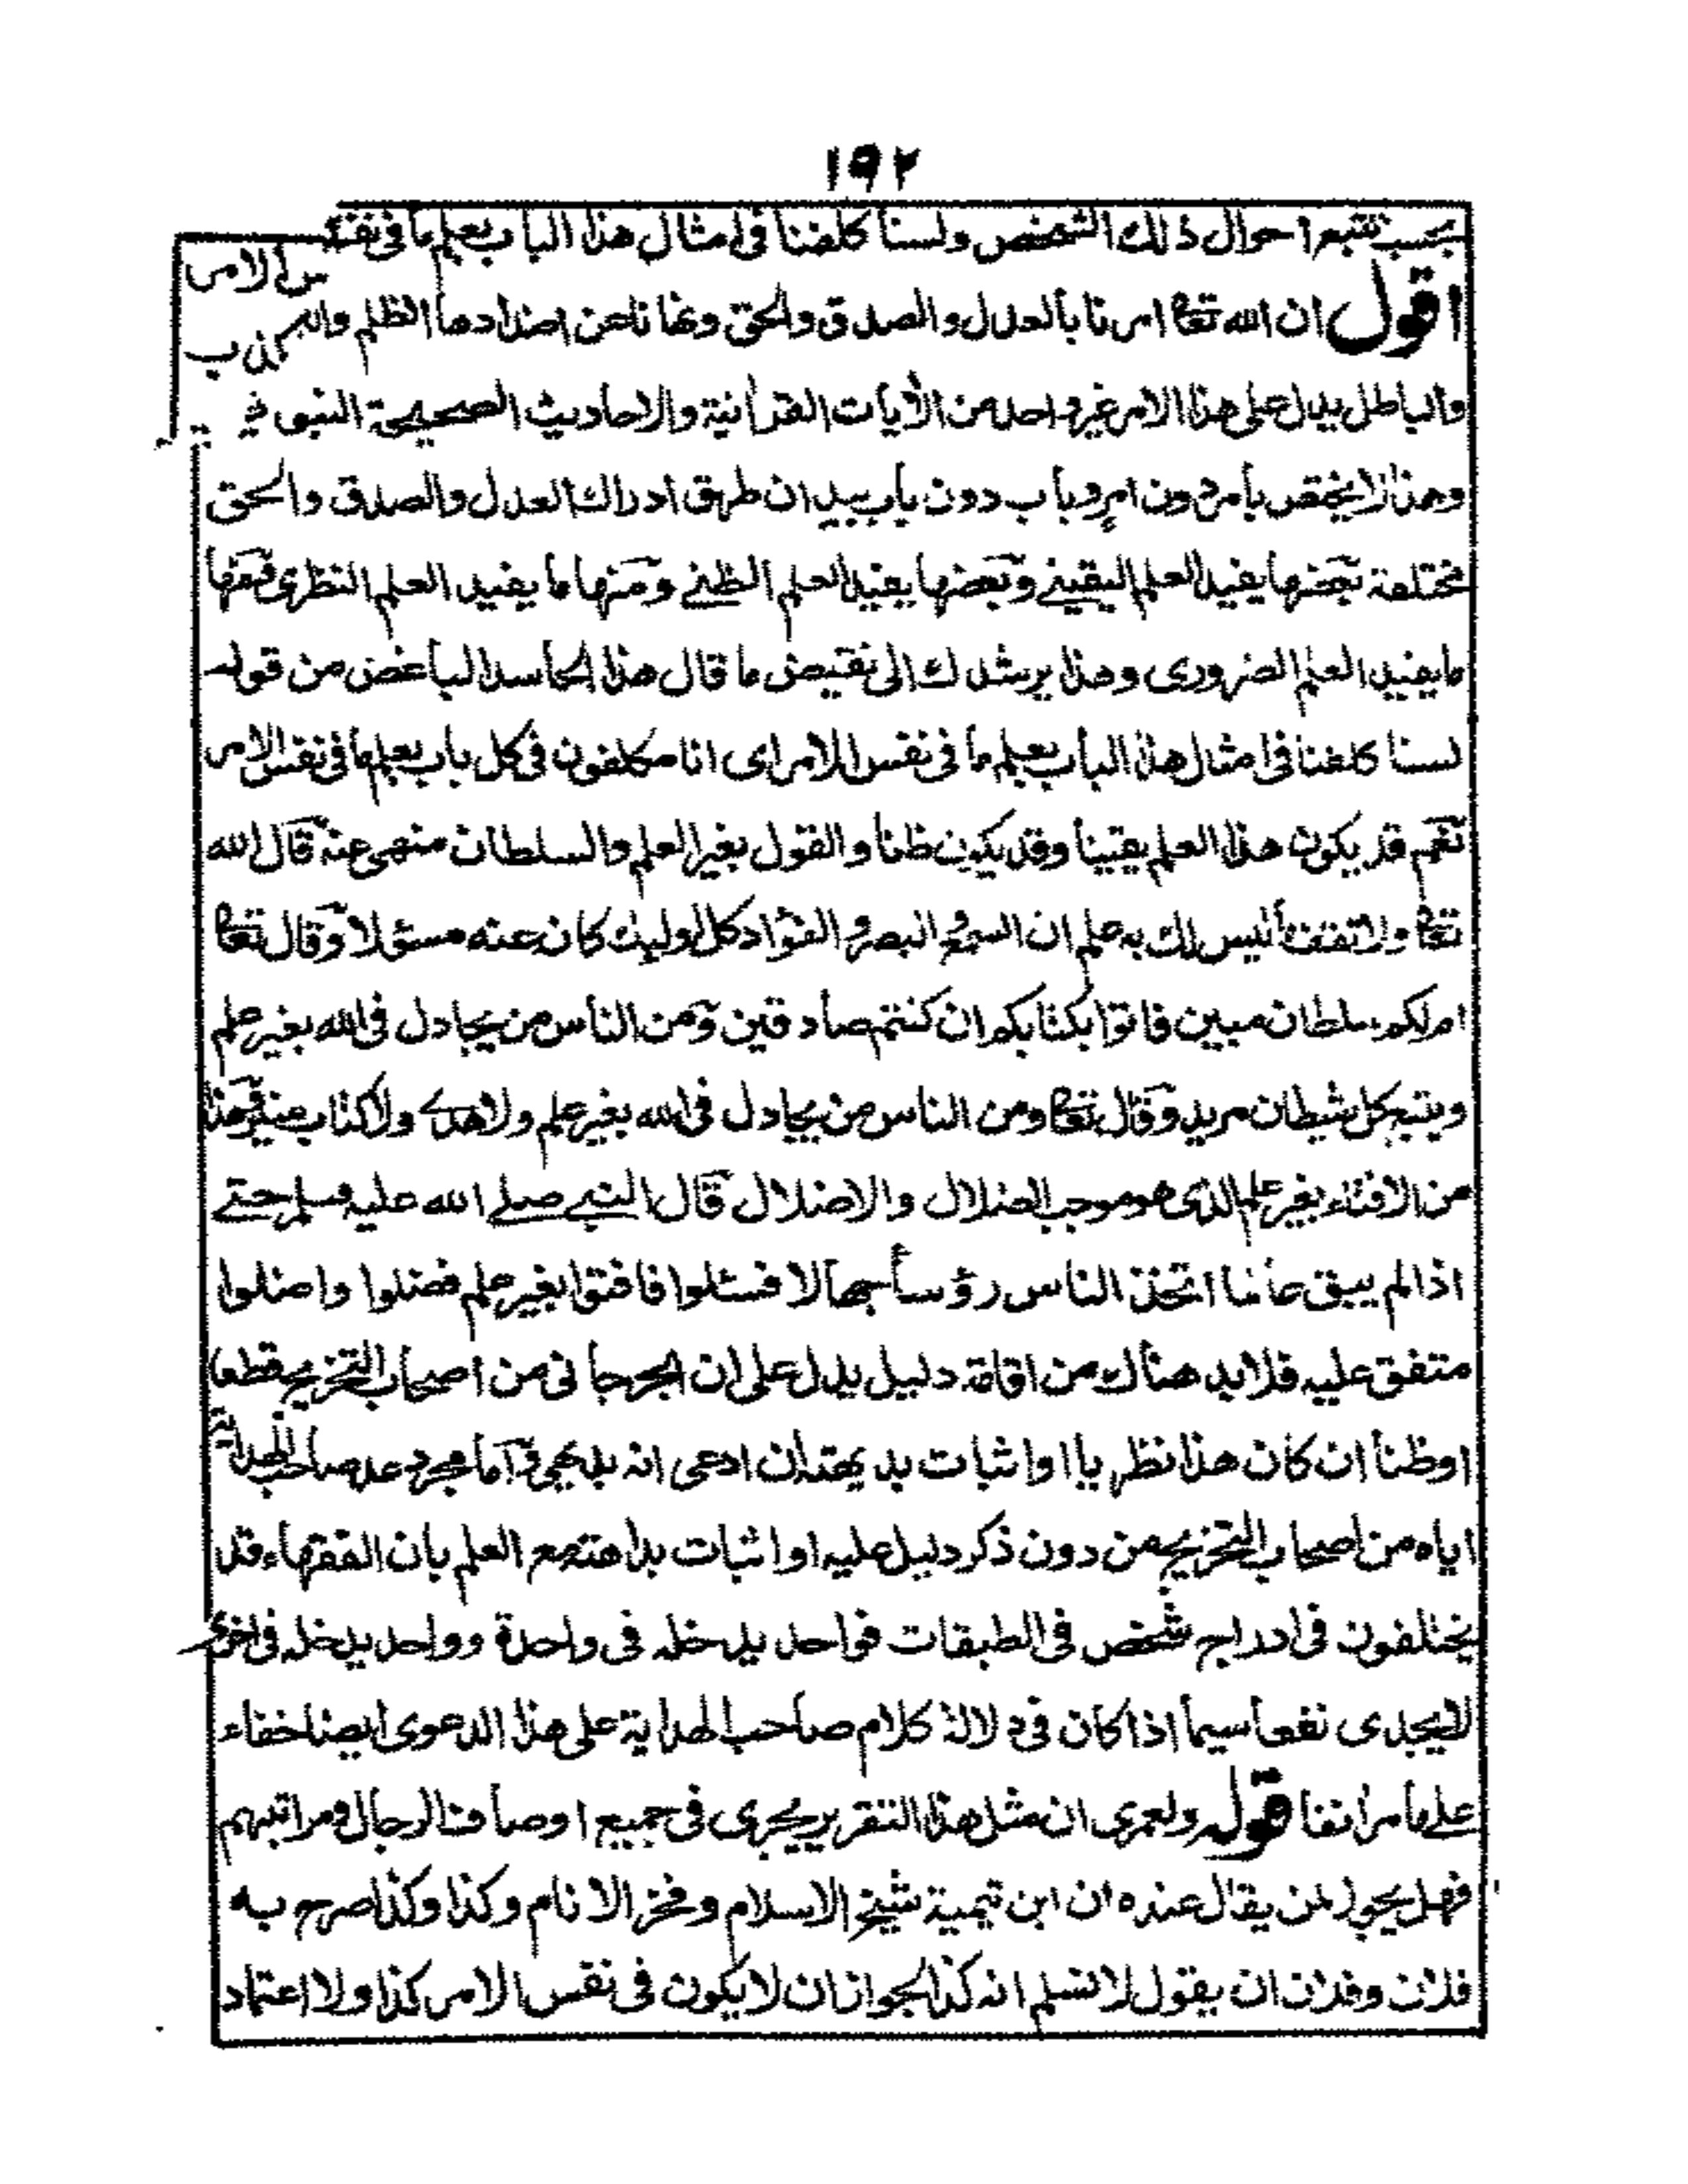 ١٩٢
بحسب تتبع احوال ذلك الشخص ولسنا كلفنا فى امثال هذا الباب بعلم ما فى نفس الامر
اقول ان الله تعا امرنا بالعدل والصدق والحق ونهانا عن اضدادها الظلم والكذب
والباطل يدل على هذا الامر غير واحد من الأيات القرأنية والاحاديث الصحيحة النبوية
وهذا لا يختص بامر دون امر وباب دون باب بيد ان طرق ادراك العدل والصدق والحق
مختلفة بعضها يفيد العلم اليقينے وبعضها يفيد العلم الظنے ومنها ما يفيد العلم النظرى ومنها
ما يفيد العلم الضرورى وهذا يرشدك الى نقيض ما قال هذا الحاسد الباغض من قوله
لسنا كلفنا فى امثال هذا الباب بعلم ما فى نفس الامر اى انا مكلفون فى كل باب بعلم ما فى نفس الامر
نعم قد يكون هذا العلم يقينا وقد يكون ظنا والقول بغير العلم والسلطان منهى عنه قال الله
تعا ولا تقف ما ليس لك به علم ان السمع والبصر والفؤاد كل اولئك كان عنه مسئولا وقال تعا
ام لكم سلطان مبين فاتوا بكتابكم ان كنتم صادقين ومن الناس من يجادل فى الله بغير علم
ويتبع كل شيطان مريد وقال تعا ومن الناس من يجادل فى الله بغير علم ولا هدے ولا كتاب منير وهذا
من الافتاء بغير علم الذى هو موجب الضلال والاضلال قال النبے صلے الله عليه وسلم حتے
اذا لم يبق عالما اتخذ الناس رؤسا جهالا فسئلوا فافتوا بغير علم فضلوا واضلوا
متفق عليه فلا بد هناك من اقامة دليل يدل على ان الجرجانى من اصحاب التخريج قطعا
اوظنا ان كان هذا نظريا او اثبات بديهته ان ادعى انه بديهى واما مجرد عد صاحب الهداية
اياه من اصحاب التخريج من دون ذكر دليل عليه او اثبات بداهته مع العلم بان الفقهاء قد
يختلفون فى ادراج شخص فى الطبقات فواحد يدخله فى واحدة وواحد يدخله فى اخرى
لا يجدى نفعا سيما اذا كان فى دلالة كلام صاحب الهداية على هذا الدعوى ايضا خفاء
علے ما مر انفا قوله ولعمرى ان مثل هذا التقرير يجرى فى جميع اوصاف الرجال ومراتبهم
فهل يجوز لمن يقال عنده ان ابن تيمية شيخ الاسلام وفخر الانام وكذا وكذا صرح به
فلان وفلان ان يقول لا نسلم انه كذا لجواز ان لا يكون فى نفس الامر كذا ولا اعتماد